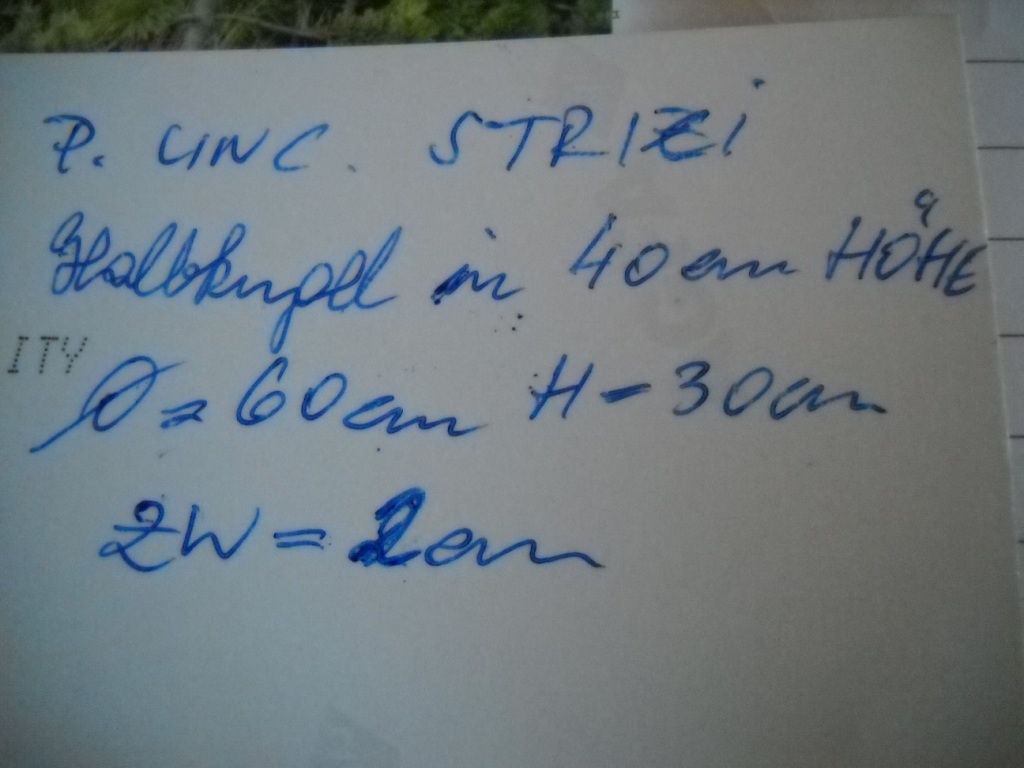 P. UNC. STRIZI
Halbkugel in 40cm HÖHE
ITY
Ø = 60cm H = 30cm
ZW = 2cm